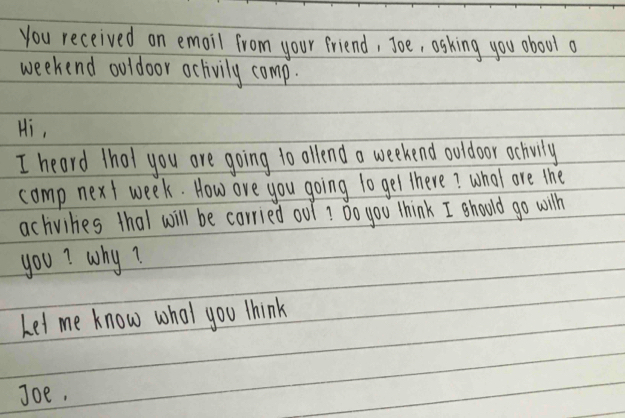 You received an email from your friend, Joe, asking you about a
weekend outdoor activity camp.
Hi,
I heard that you are going to attend a weekend outdoor activity
camp next week. How are you going to get there? what are the
activities that will be carried out? Do you think I should go with
you? why?
Let me know what you think
Joe,